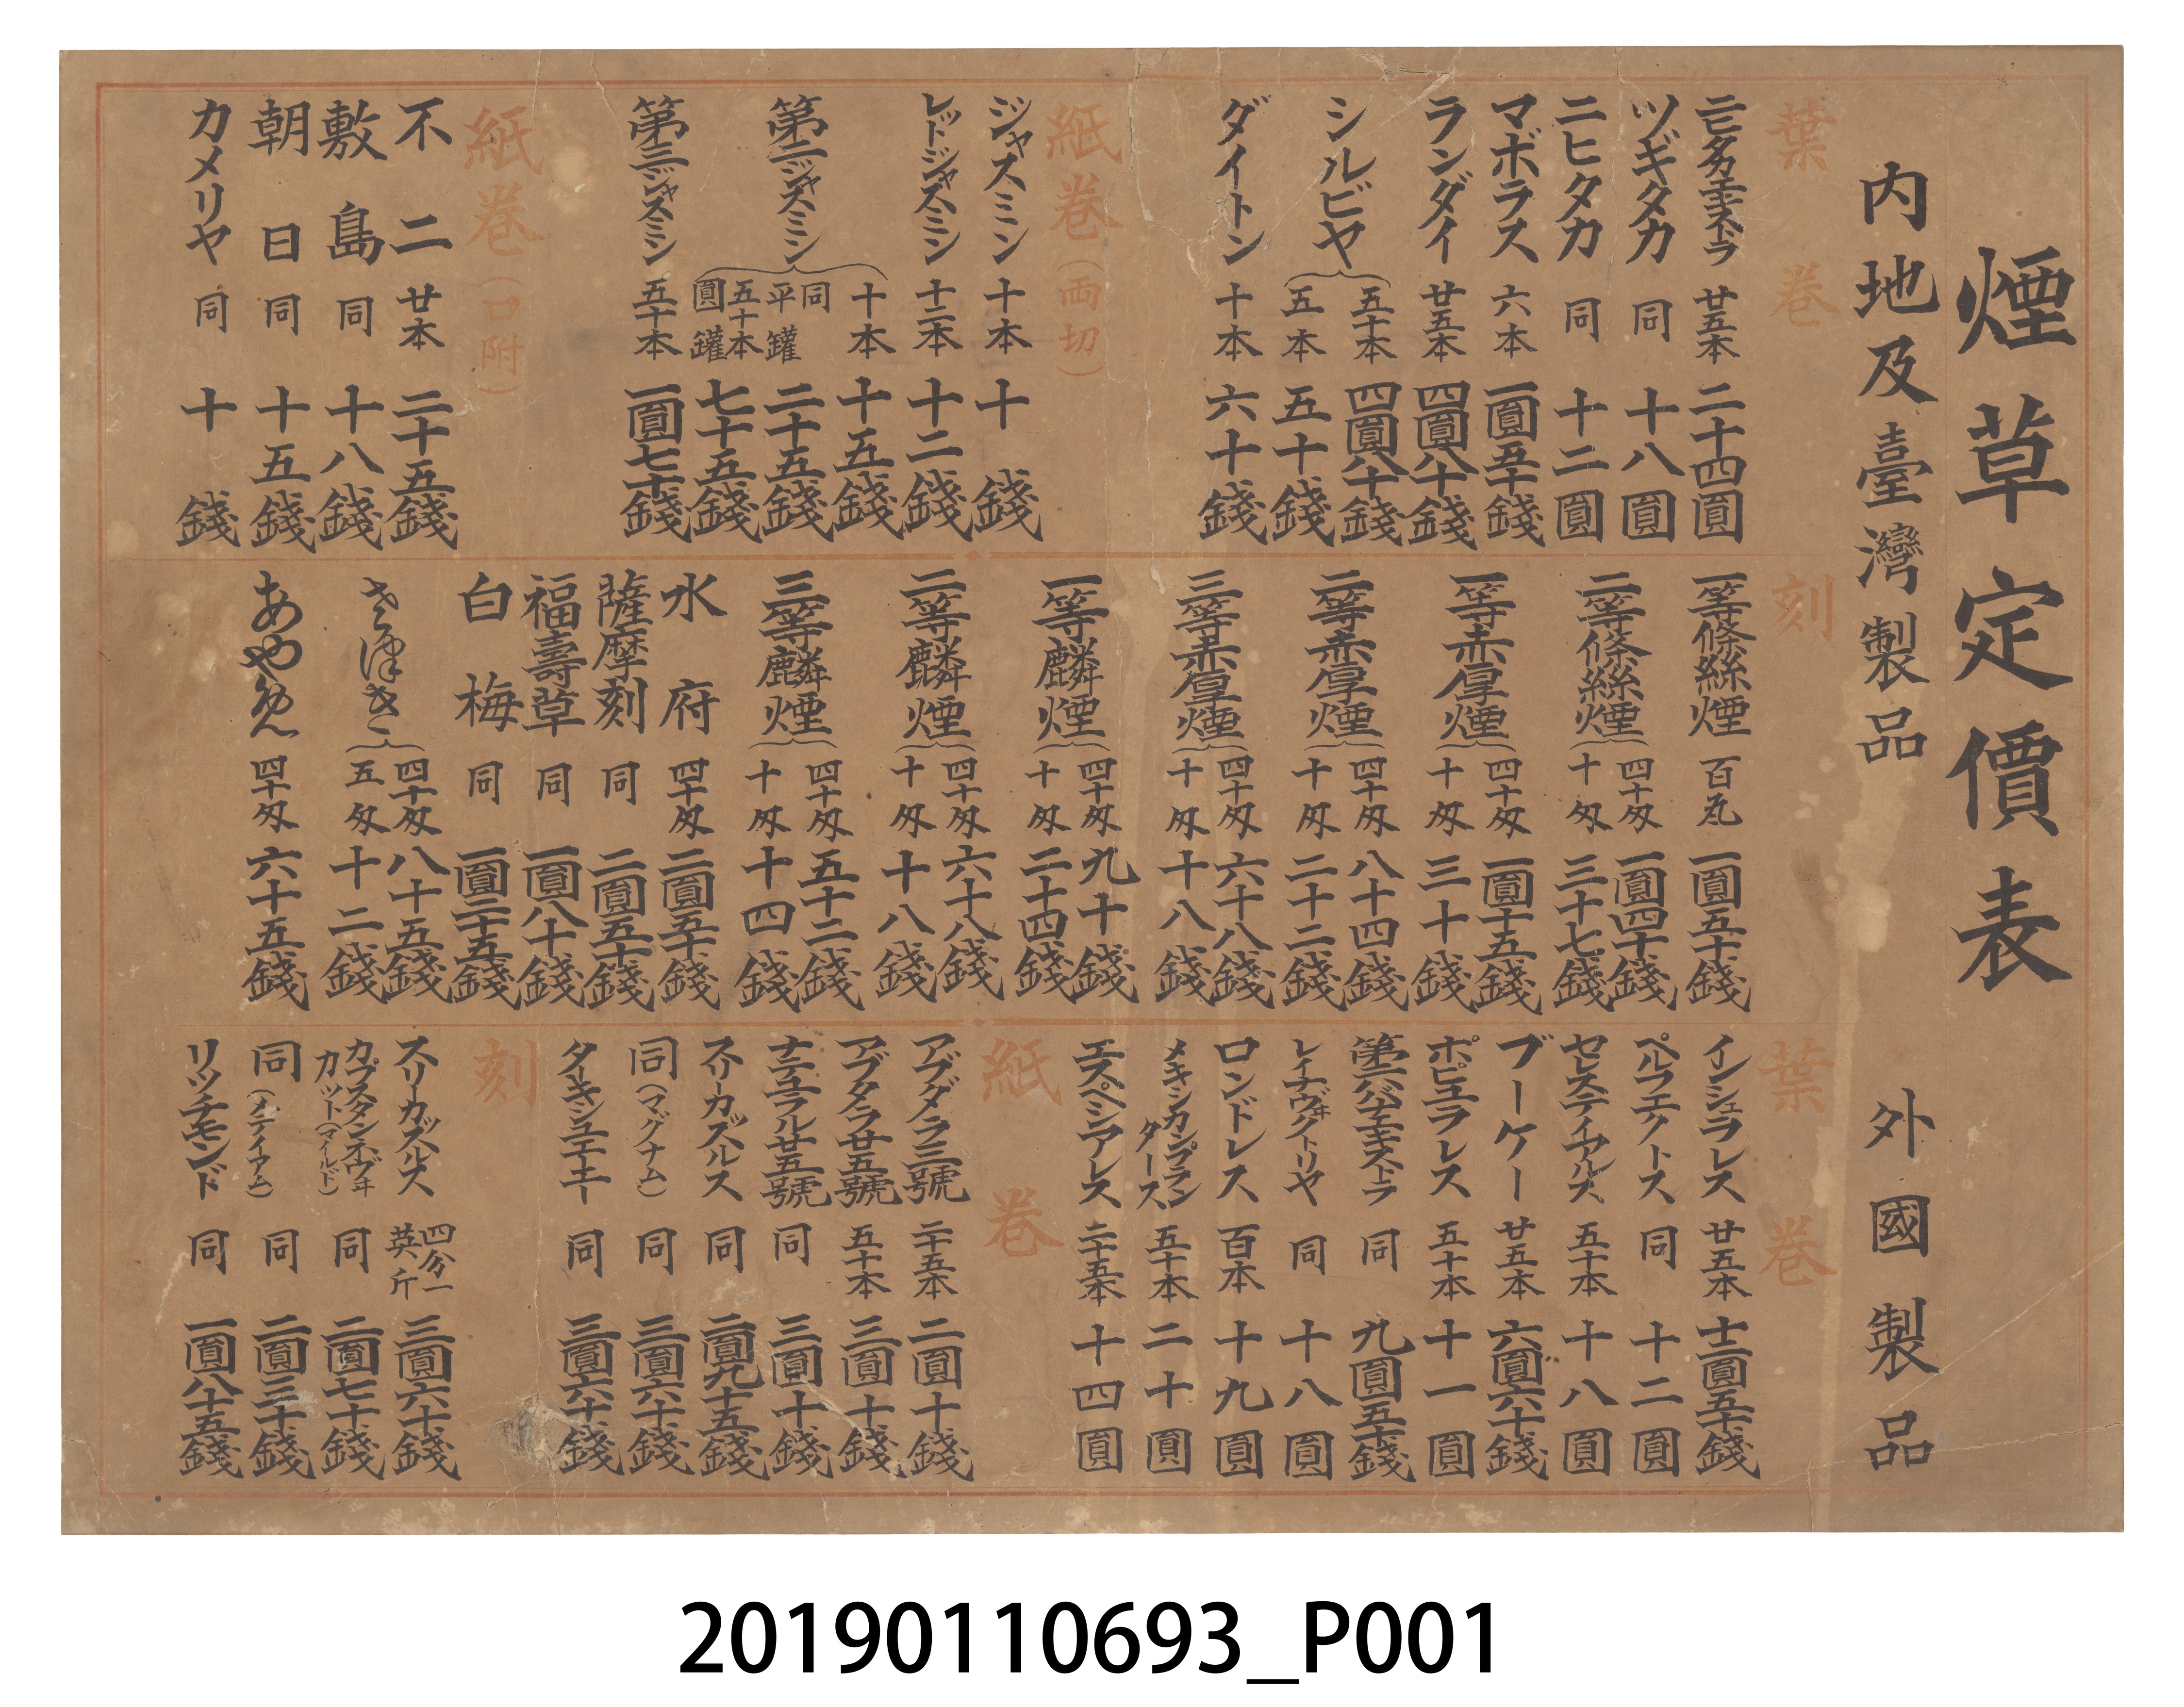 煙草定價表
内地及臺灣製品
外國製品
葉巻
ニヒタカエキストラ 廿五本 二十四圓
ツギタカ 同 十八圓
ニヒタカ 同 十二圓
マボラス 六本 一圓五十錢
ランダイ 廿五本 四圓八十錢
シルビヤ 五十本 四圓八十錢
五本 五十錢
ダイトン 十本 六十錢
紙巻(両切)
ジャスミン 十本 十錢
レットジャスミン 十二本 十二錢
第二ジャスミン 十本 十五錢
同平罐 二十五錢
五十本圓罐 七十五錢
第三ジャスミン 五十本 一圓七十錢
紙巻(口附)
不二 廿本 二十五錢
敷島 同 十八錢
朝日 同 十五錢
カメリヤ 同 十錢
刻
一等條絲煙 百瓦 一圓五十錢
二等條絲煙 四十匁 一圓四十錢
十匁 三十七錢
一等赤厚煙 四十匁 一圓十五錢
十匁 三十錢
二等赤厚煙 四十匁 八十四錢
十匁 二十二錢
三等赤厚煙 四十匁 六十八錢
十匁 十八錢
一等麟煙 四十匁 九十錢
十匁 二十四錢
二等麟煙 四十匁 六十八錢
十匁 十八錢
三等麟煙 四十匁 五十二錢
十匁 十四錢
水府 四十匁 二圓五十錢
薩摩刻 同 二圓五十錢
福壽草 同 一圓八十錢
白梅 同 一圓二十五錢
さつき 四十匁 八十五錢
五匁 十二錢
あやめ 四十匁 六十五錢
葉巻
インシュラレス 廿五本 十二圓五十錢
ペルフエクトス 同 十二圓
セレスティアルス 五十本 十八圓
ブーケー 廿五本 六圓六十錢
ポピュラレス 五十本 十一圓
第六バナエキストラ 同 九圓五十錢
レイナヴヰクトリヤ 同 十八圓
ロンドレス 百本 十九圓
メキシカンプランタース 五十本 二十圓
エスペシアレス 二十五本 十四圓
紙巻
アブダラ三號 二十五本 二圓十錢
アブタラ廿五號 五十本 三圓十錢
ナチュラル廿五號 同 三圓十錢
スリーカッスルス 同 二圓九十五錢
同(マグナム) 同 三圓六十錢
ターキシュエーエー 同 三圓六十錢
刻
スリーカッスルス 四分一英斤 三圓六十錢
カプスタンネヴヰカット(マイルド) 同 二圓七十錢
同(メディアム) 同 二圓三十錢
リッチモンド 同 一圓八十五錢
20190110693_P001